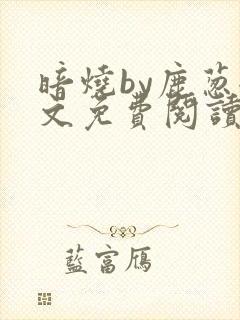 暗燒by鹿葱
文免費閱讀
藍富鴈